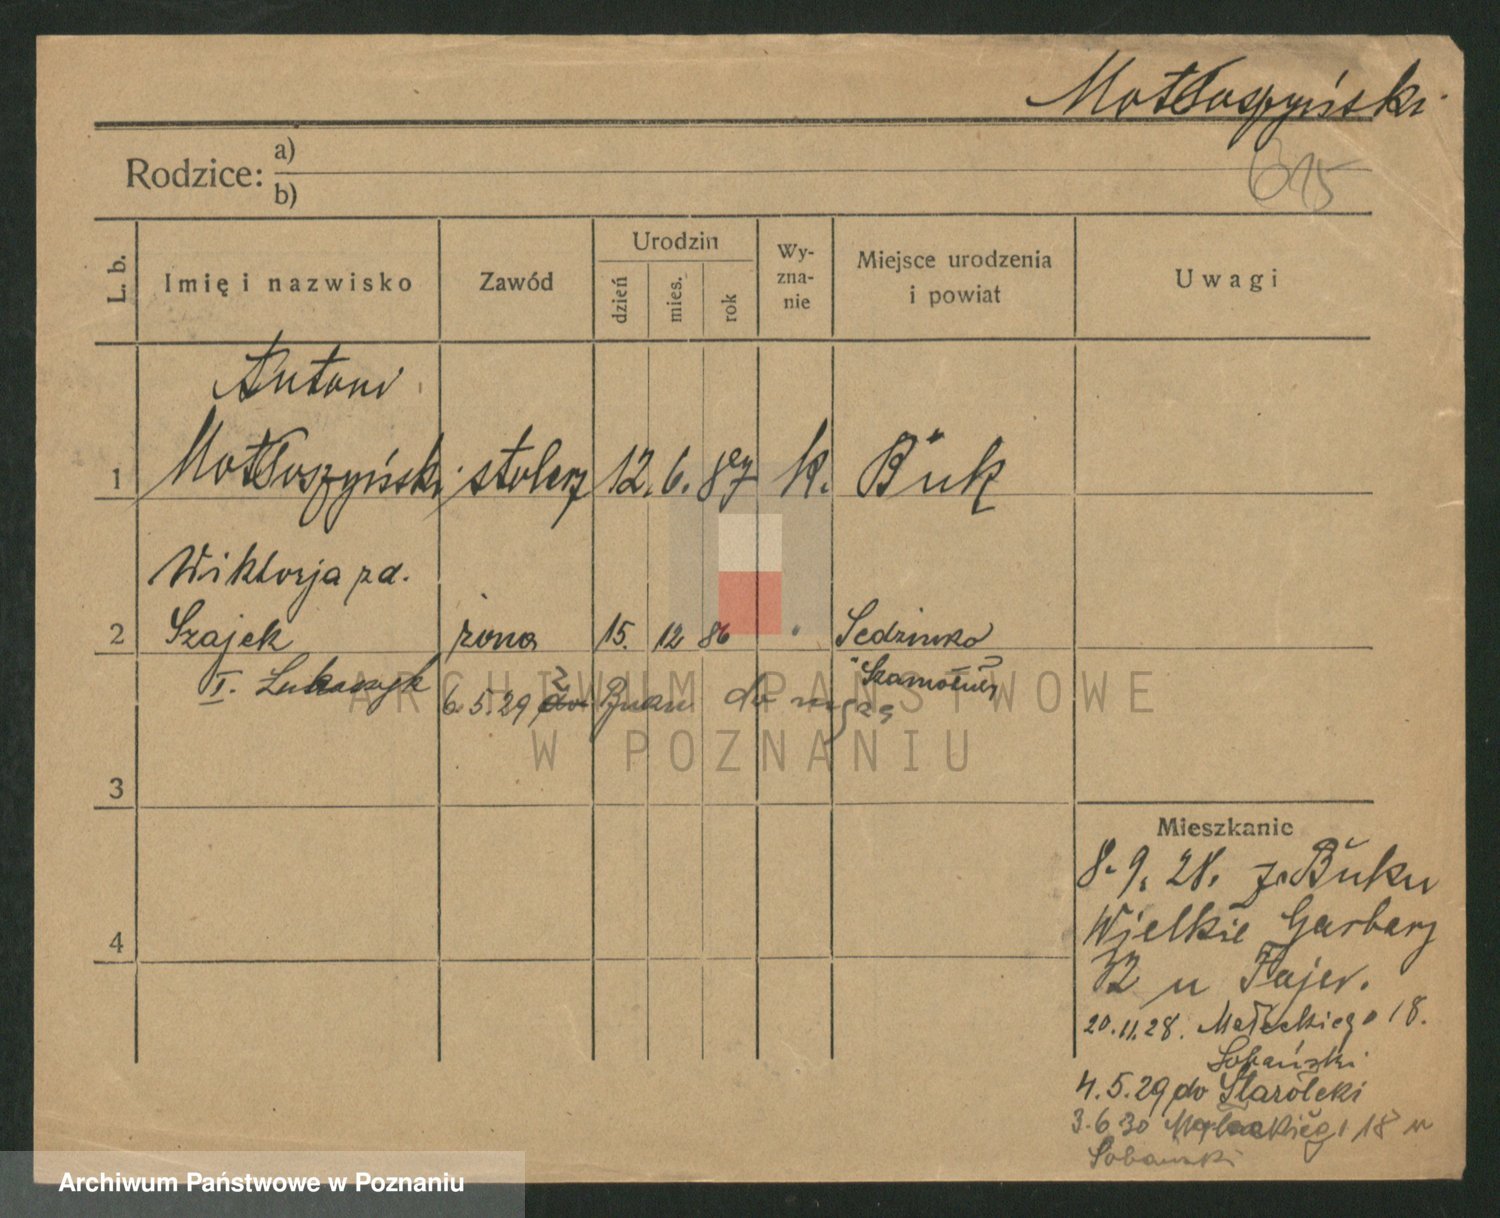 Motłoszyński
615
Rodzice: a)
b)
L. b.
Imię i nazwisko
Zawód
Urodzin
dzień
mies.
rok
Wy-
zna-
nie
Miejsce urodzenia
i powiat
Uwagi
Antoni
1 Motłoszyński stolarz 12. 6. 87 k. Buk
Wiktorja zd.
2 Szajek żona 15. 12 86 " Sedzinko
I. Łukaszyk
" Szamotuły
6.5.29 z Buku do męża
3
4
Mieszkanie
8.9.28. z Buku
Wielkie Garbary
32 u Fajer.
20.11.28. Małeckiego 18.
Sobański
4.5.29 do Starołeki
3.6 30 Małeckiego 18 u
Sobański
ARCHIWUM PAŃSTWOWE
W POZNANIU
Archiwum Państwowe w Poznaniu